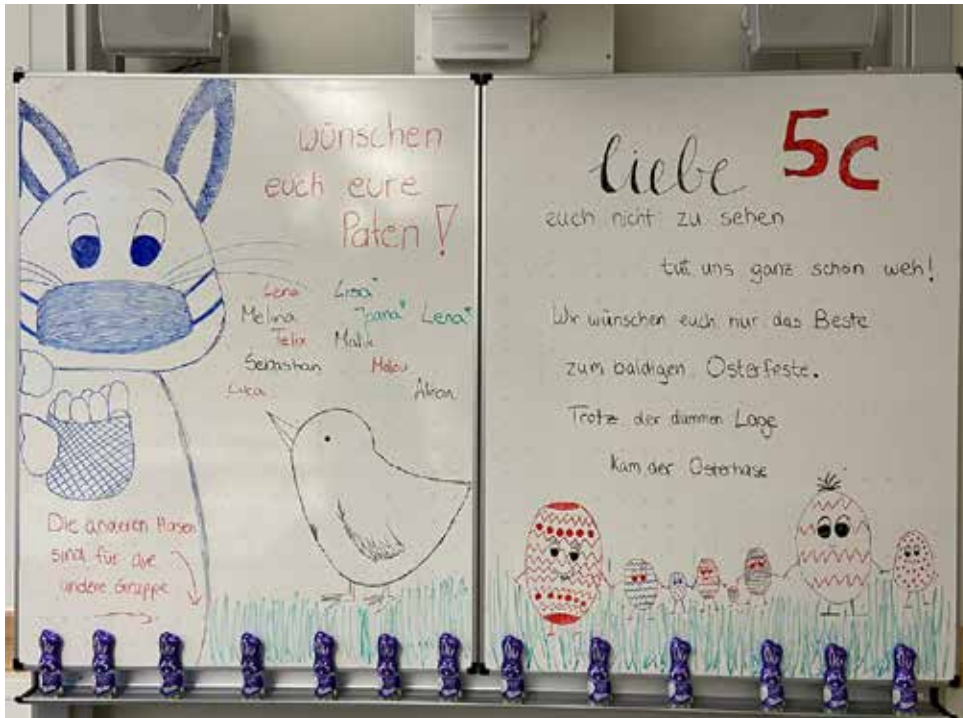 wünschen
euch eure
Paten!
Lena Lisa
Melina Lena
Felix Malik
Sebastian Malou
Luca
Die anderen Hasen
sind für die
andere Gruppe
liebe 5c
euch nicht zu sehen
tut uns ganz schön weh!
Wir wünschen euch nur das Beste
zum baldigen Osterfeste.
Trotz der dummen Lage
kam der Osterhase